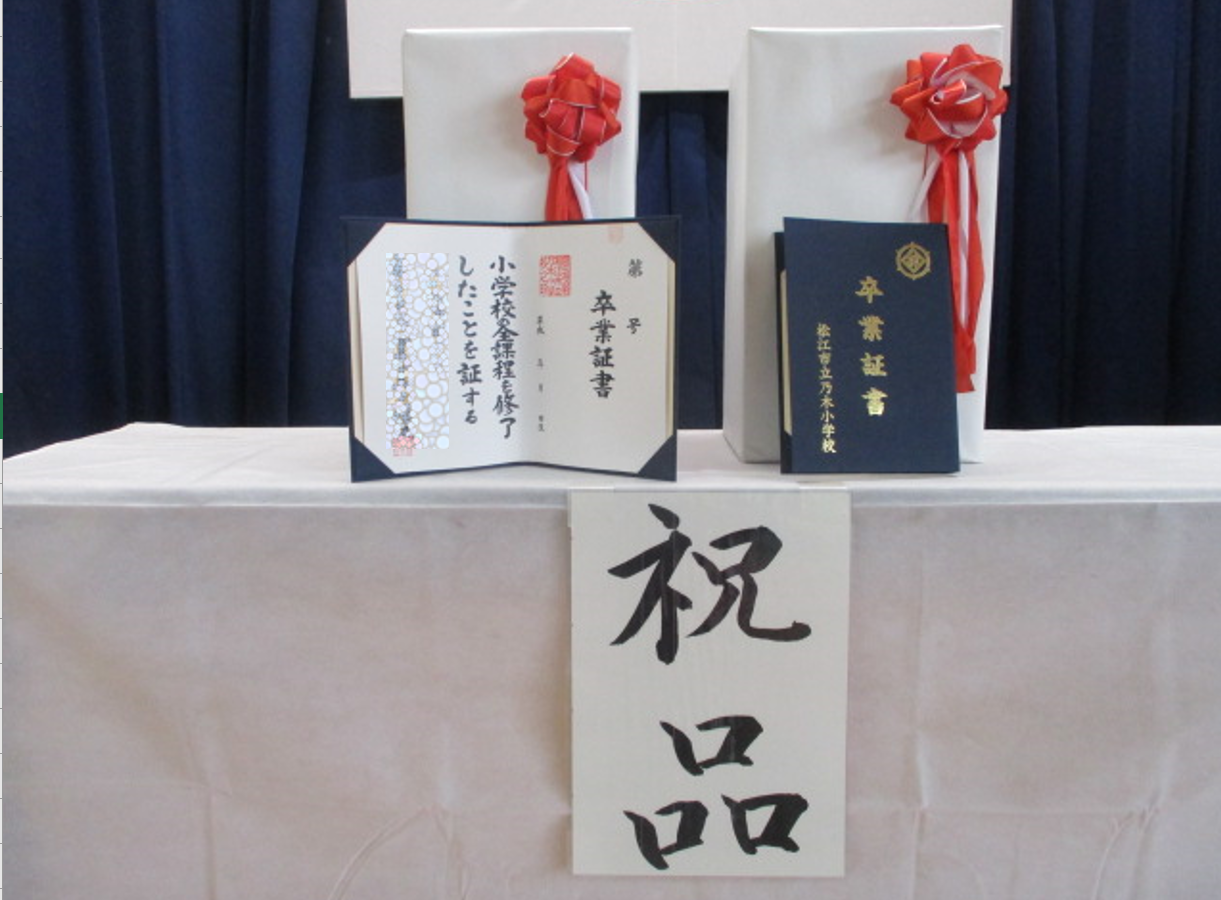 第　号
卒業証書
平成　年　月　日生
小学校の全課程を修了
したことを証する
卒業証書
松江市立乃木小学校
祝品